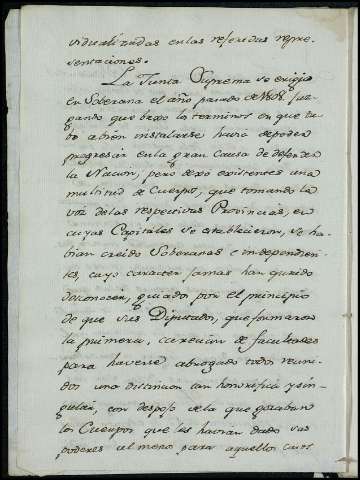 vidualizadas en las referidas repre-
sentaciones.
La Junta Suprema se erigio
en Soberana el año pasado de 1808 juz-
gando que bajo los terminos en que tu-
bo a bien instalarse havia de poder
progresar en la gran Causa de defender
la Nacion, pero dexó existentes una
multitud de Cuerpos, que tomando la
voz de las respectivas Provincias, en
cuyas Capitales se establecieron, se ha-
bian creido Soberanas e independien-
tes, cuyo caracter jamas han querido
desconocer, guiados por el principio
de que sus Diputados, que formaron
la primera, carecian de facultades
para haverse abrogado todos reuni-
dos una distincion tan honorifica y sin-
gular, con despojo de la que gozaban
los Cuerpos que les havian dado sus
poderes al menos para aquellos casos